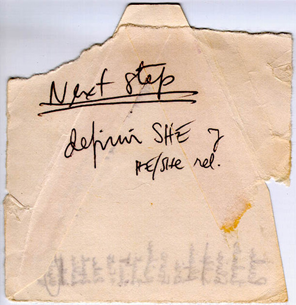 Next step
definir SHE y
HE/SHE rel.